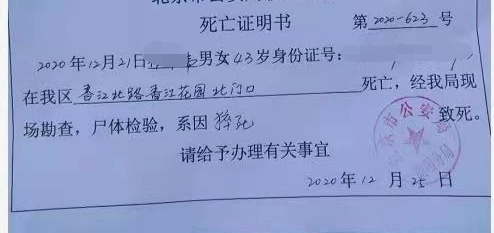 死亡证明书 第2020-623号
2020年12月21日 男女43岁身份证号：
在我区香江北路香江花园北门口死亡，经我局现
场勘查，尸体检验，系因猝死 致死。
请给予办理有关事宜
2020年12月25日
市公安局